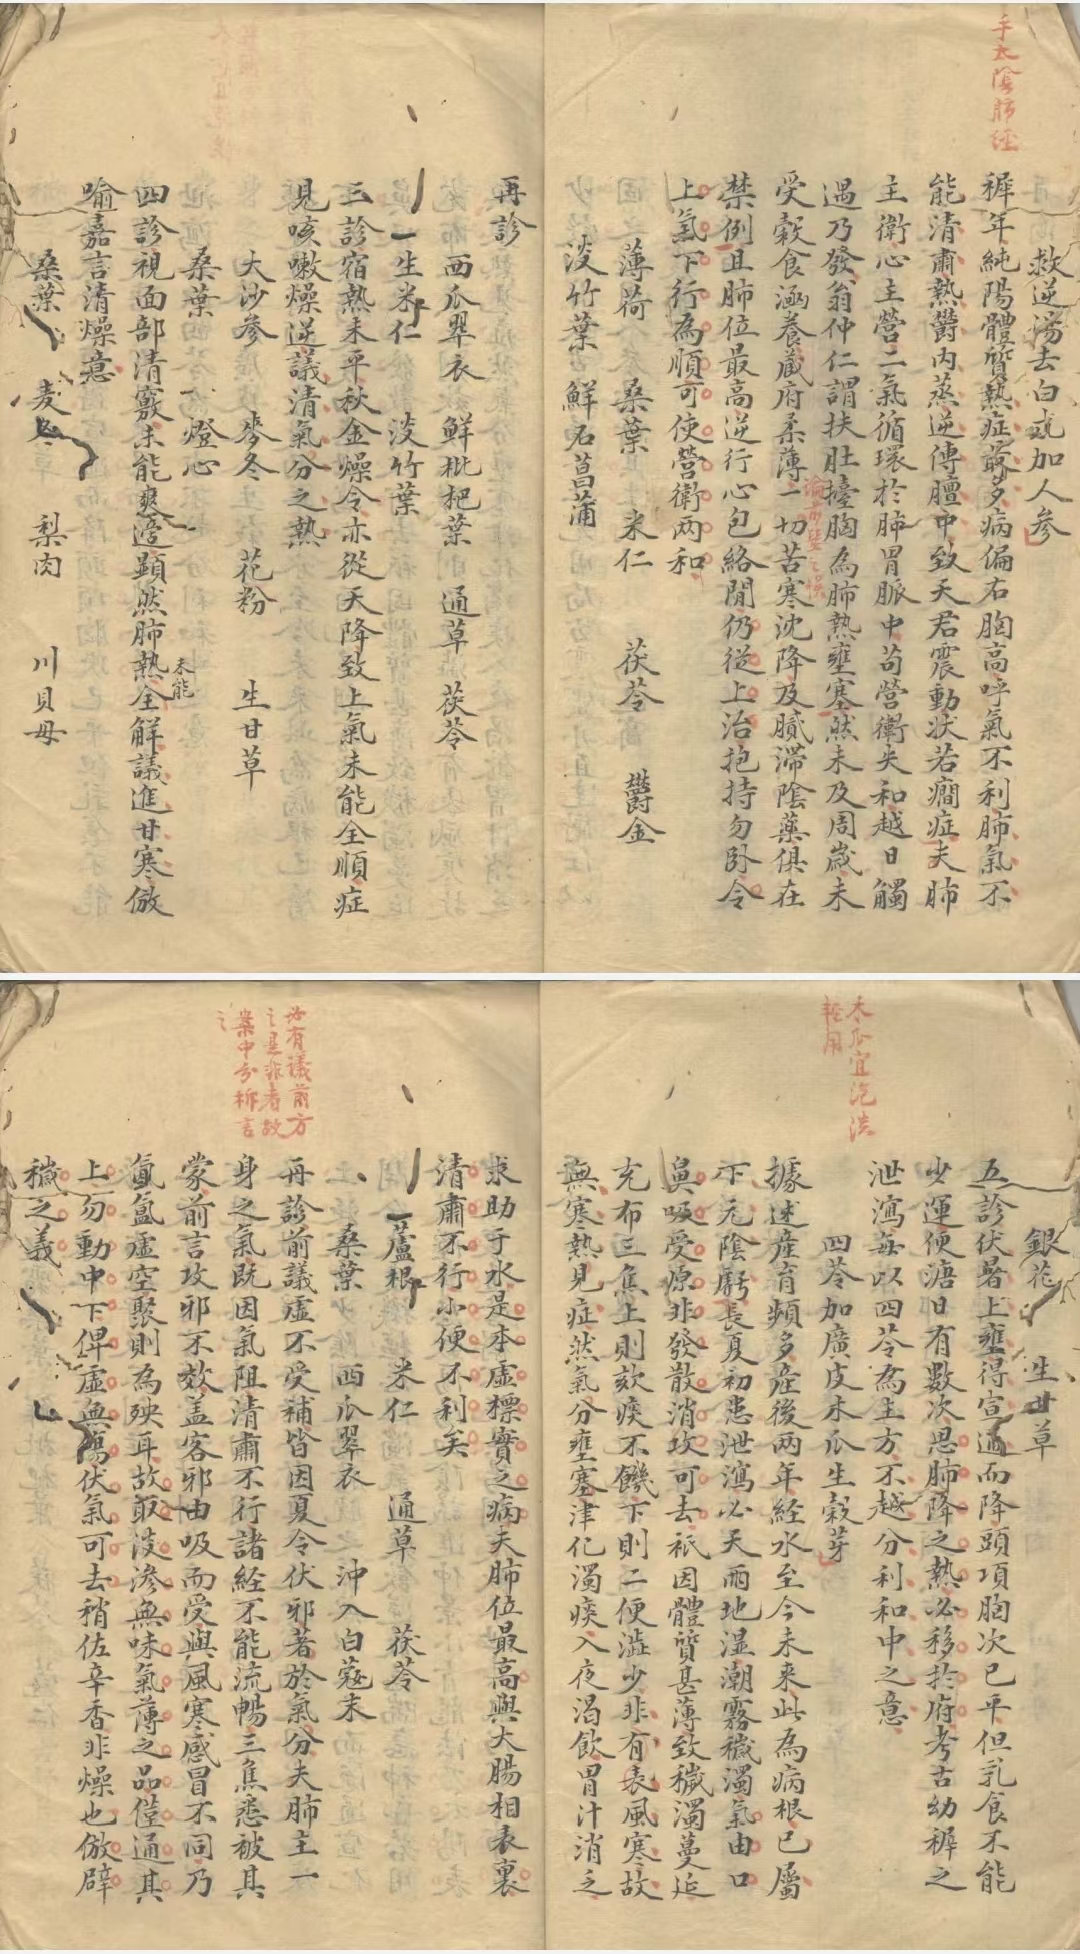 手太陰肺經
救逆湯去白芍加人參
穉年純陽體質熱症最多病偏右胸高呼氣不利肺氣不
能清肅熱鬱內蒸逆傳膻中致天君震動狀若癎症夫肺
主衛心主營二氣循環於肺胃脈中苟營衛失和越日觸
遇乃發翁仲仁謂扶肚擡胸為肺熱壅塞然未及周歲未
受穀食涵養蔵府柔薄一切苦寒沈降及膩滯陰藥俱在
禁例且肺位最高逆行心包絡間仍從上治抱持勿臥令
上氣下行為順可使營衛兩和
薄荷 桑葉 米仁 茯苓 鬱金
淡竹葉 鮮石菖蒲
再診
西瓜翠衣 鮮枇杷葉 通草 茯苓
生米仁 淡竹葉
三診宿熱未平秋金燥令亦從天降致上氣未能全順症
見咳嗽燥逆議清氣分之熱
大沙參 麥冬 花粉 生甘草
桑葉 燈心
四診視面部清竅未能爽适顯然肺熱未能全解議進甘寒倣
喻嘉言清燥意
桑葉 麦冬 梨肉 川貝母
木瓜宜泡淡
輕用
銀花 生甘草
五診伏暑上壅得宣通而降頭項胸次已平但乳食不能
少運便溏日有數次思肺降之熱必移於府考古幼穉之
泄瀉每以四苓為主方不越分利和中之意
四苓加廣皮木瓜生穀芽
據述產育頻多產後兩年経水至今未来此為病根已屬
下元陰虧長夏初患泄瀉必天雨地湿潮霧穢濁氣由口
鼻吸受原非發散消攻可去祇因體質甚薄致穢濁蔓延
充布三焦上則欬痰不饑下則二便澁少非有表風寒故
無寒熱見症然氣分壅塞津化濁痰入夜渴飲胃汁消乏
求助于水是本虛標實之病夫肺位最高與大腸相表裏
清肅不行小便不利矣
蘆根 米仁 通草 茯苓
桑葉 西瓜翠衣 沖入白蔻末
必有議前方
之是非者故
案中分析言
之
再診前議虛不受補皆因夏令伏邪著於氣分夫肺主一
身之氣既因氣阻清肅不行諸経不能流暢三焦悉被其
蒙前言攻邪不效盖客邪由吸而受與風寒感冒不同乃
氤氲虛空聚則為殃耳故取淡滲無味氣薄之品僅通其
上勿動中下俾虛無傷伏氣可去稍佐辛香非燥也倣辟
穢之義